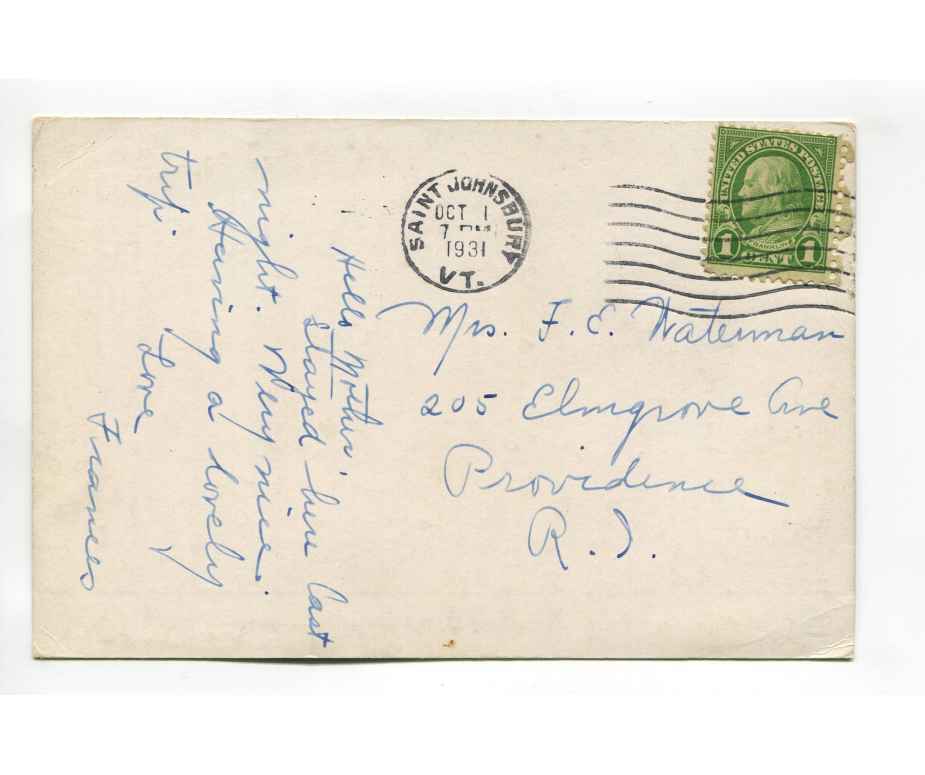 Hello Mother,
Stayed here last
night. Very nice.
Having a lovely
trip.
Love
Frances
SAINT JOHNSBURY
OCT 1
7 PM
1931
VT.
UNITED STATES POSTAGE
FRANKLIN
1 CENT 1
Mrs. F. E. Waterman
205 Elmgrove Ave
Providence
R.I.